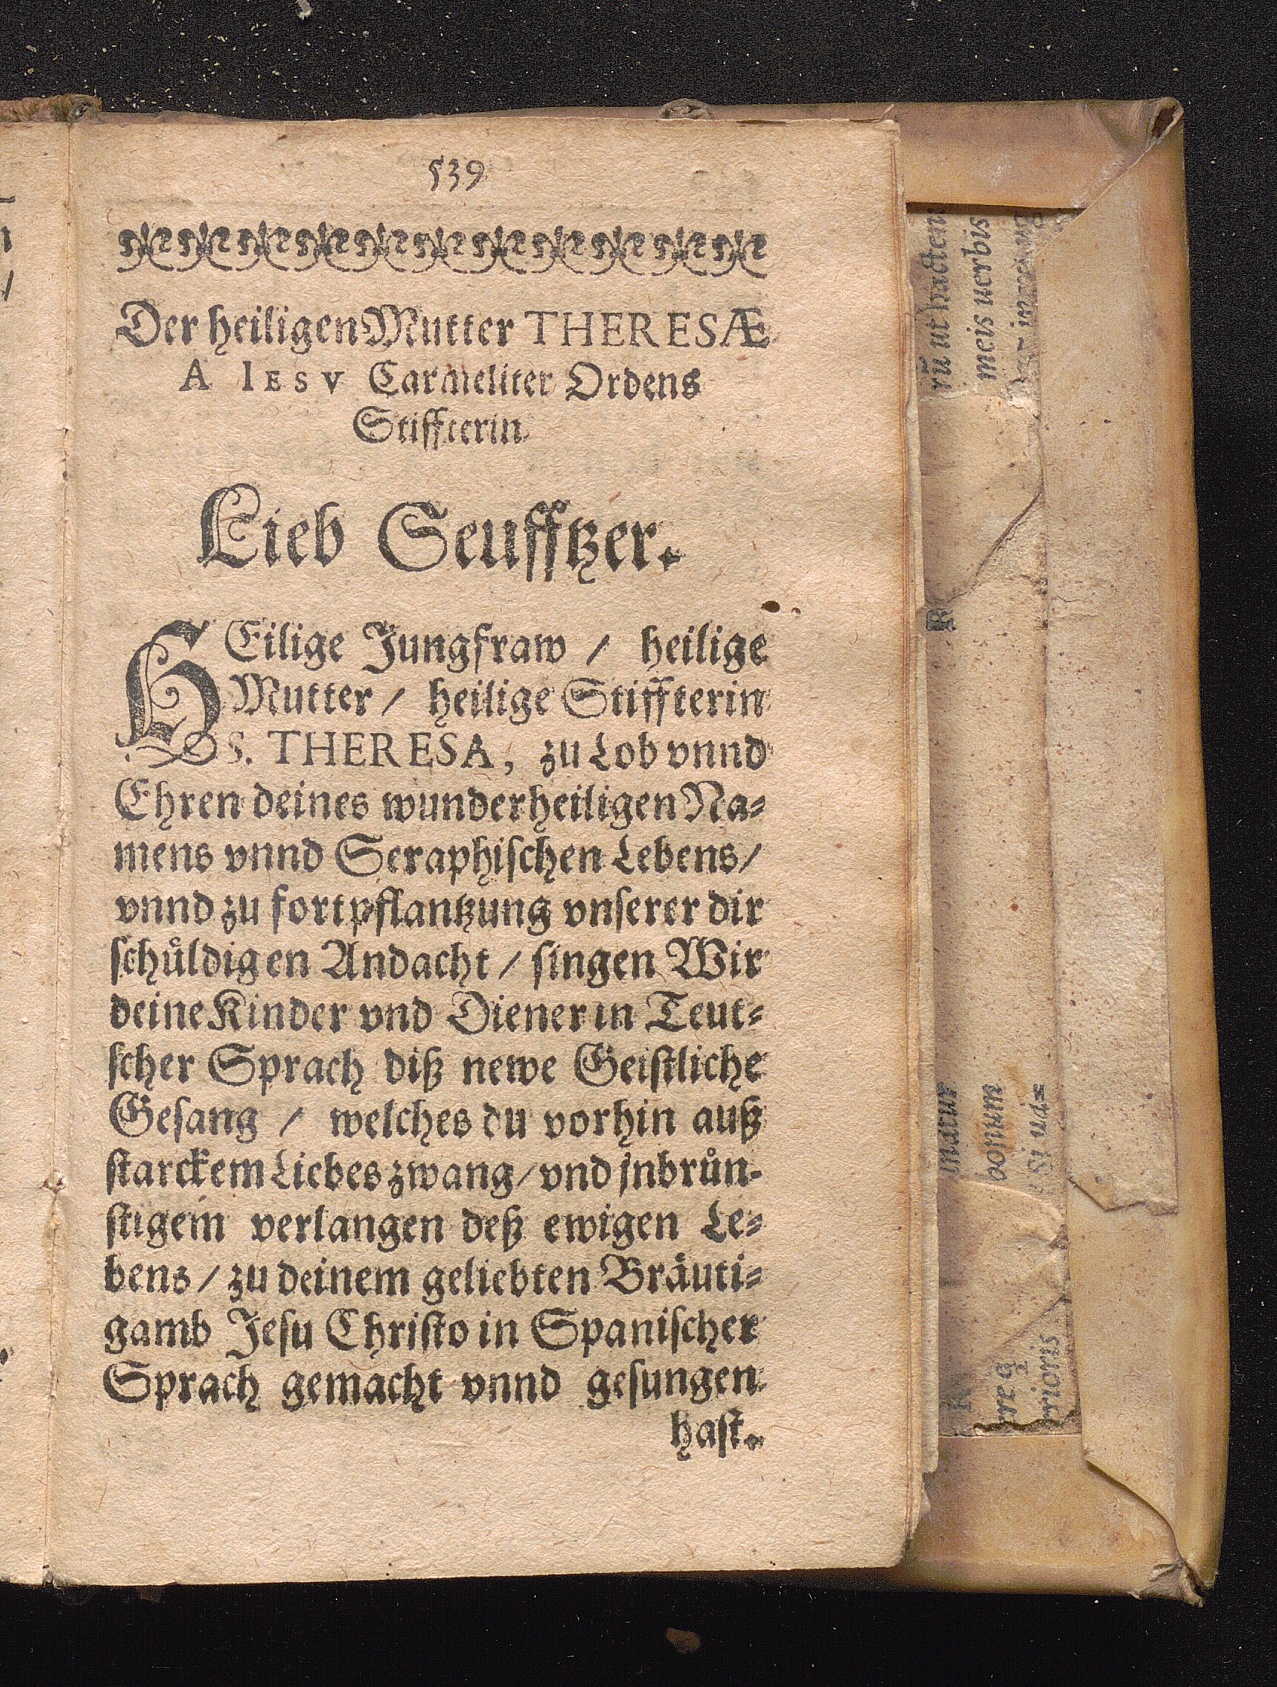 539
Der heiligen Mutter THERESÆ
A IESV Carmeliter Ordens
Stiffterin
Lieb Seufftzer.
HEilige Jungfraw / heilige
Mutter / heilige Stiffterin
S. THERESA, zu Lob vnnd
Ehren deines wunderheiligen Na-
mens vnnd Seraphischen Lebens /
vnnd zu fortpflantzung vnserer dir
schůldigen Andacht / singen Wir
deine Kinder vnd Diener in Teut-
scher Sprach diß newe Geistliche
Gesang / welches du vorhin auß
starckem Liebes zwang / vnd jnbrůn-
stigem verlangen deß ewigen Le-
bens / zu deinem geliebten Bräuti-
gamb Jesu Christo in Spanischer
Sprach gemacht vnnd gesungen
hast.
rũ ut hacten
meis uerbis